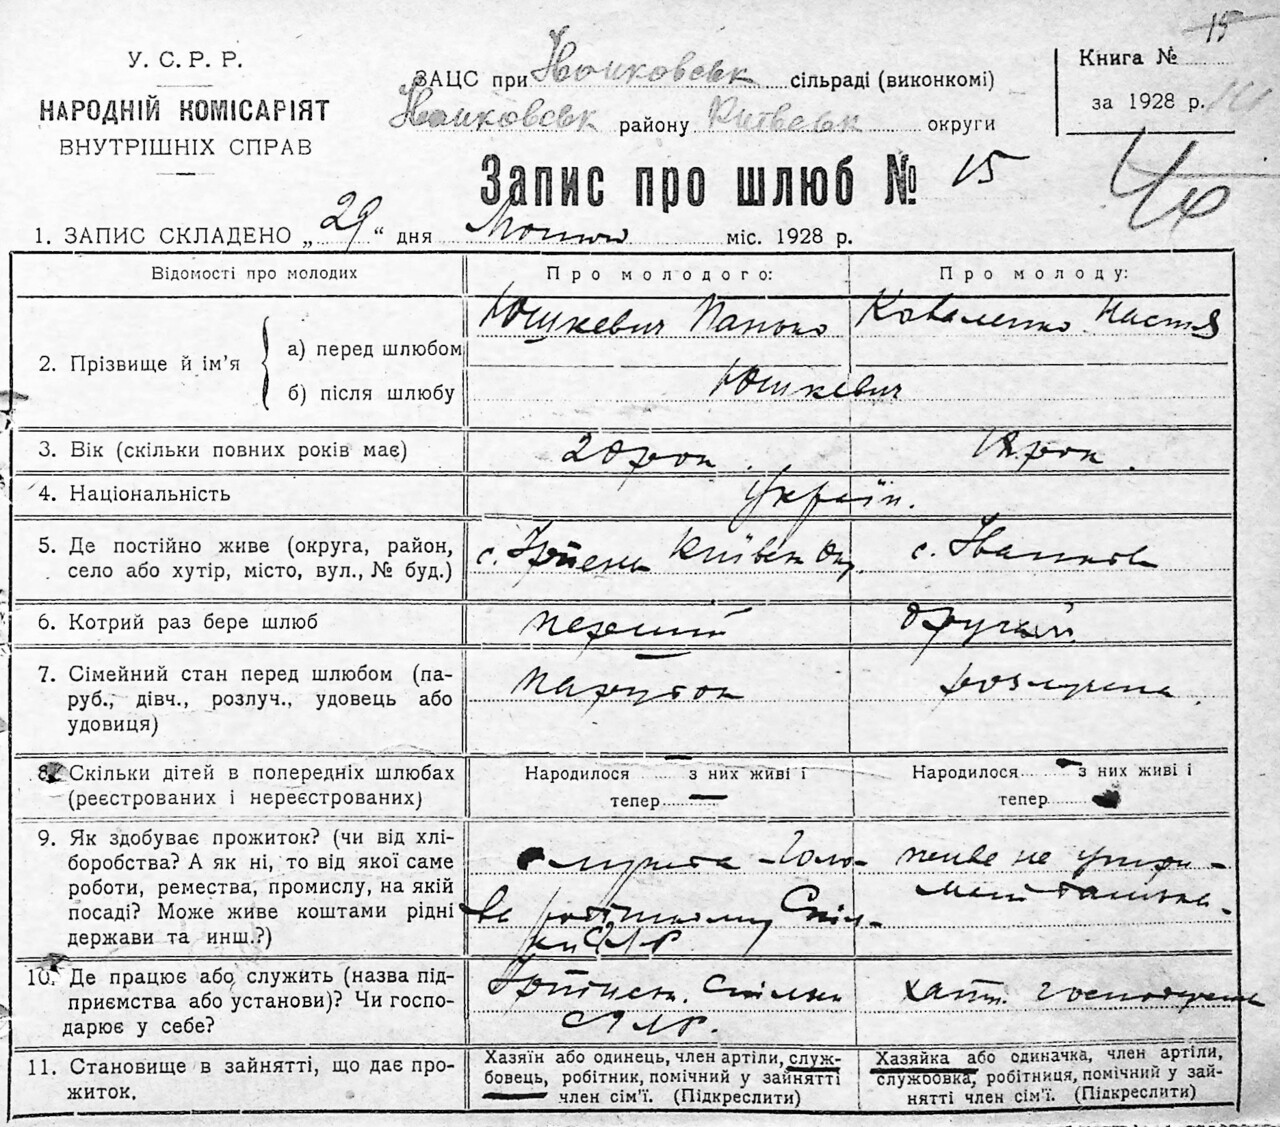 15
У. С. Р. Р.
НАРОДНІЙ КОМІСАРІЯТ
ВНУТРІШНІХ СПРАВ
ЗАЦС при сільраді (виконкомі)
району округи
Книга №
за 1928 р.
Запис про шлюб № 15
1. ЗАПИС СКЛАДЕНО „ 29 “ дня міс. 1928 р.
Відомості про молодих
Про молодого:
Про молоду:
2. Прізвище й ім’я
а) перед шлюбом
Юшкевич Панько
Коваленко Настя
б) після шлюбу
Юшкевич
3. Вік (скільки повних років має)
20 рок.
18 рок.
4. Національність
Україн.
5. Де постійно живе (округа, район,
село або хутір, місто, вул., № буд.)
с. Ірпень Київськ Окр.
с. Іванков
6. Котрий раз бере шлюб
перший
другий
7. Сімейний стан перед шлюбом (па-
руб., дівч., розлуч., удовець або
удовиця)
парубок
розлучена
8. Скільки дітей в попередніх шлюбах
(реєстрованих і нереєстрованих)
Народилося з них живі і
тепер
Народилося з них живі і
тепер
9. Як здобуває прожиток? (чи від хлі-
боробства? А як ні, то від якої саме
роботи, ремества, промислу, на якій
посаді? Може живе коштами рідні
держави та инш.?)
Голо-
ва Спіл-
ки
живе на
10. Де працює або служить (назва під-
приємства або установи)? Чи госпо-
дарює у себе?
Спілка
хатн.
11. Становище в зайнятті, що дає про-
житок.
Хазяїн або одинець, член артіли, служ-
бовець, робітник, помічний у зайнятті
член сім’ї. (Підкреслити)
Хазяйка або одиначка, член артіли,
службовка, робітниця, помічний у зай-
нятті член сім’ї. (Підкреслити)